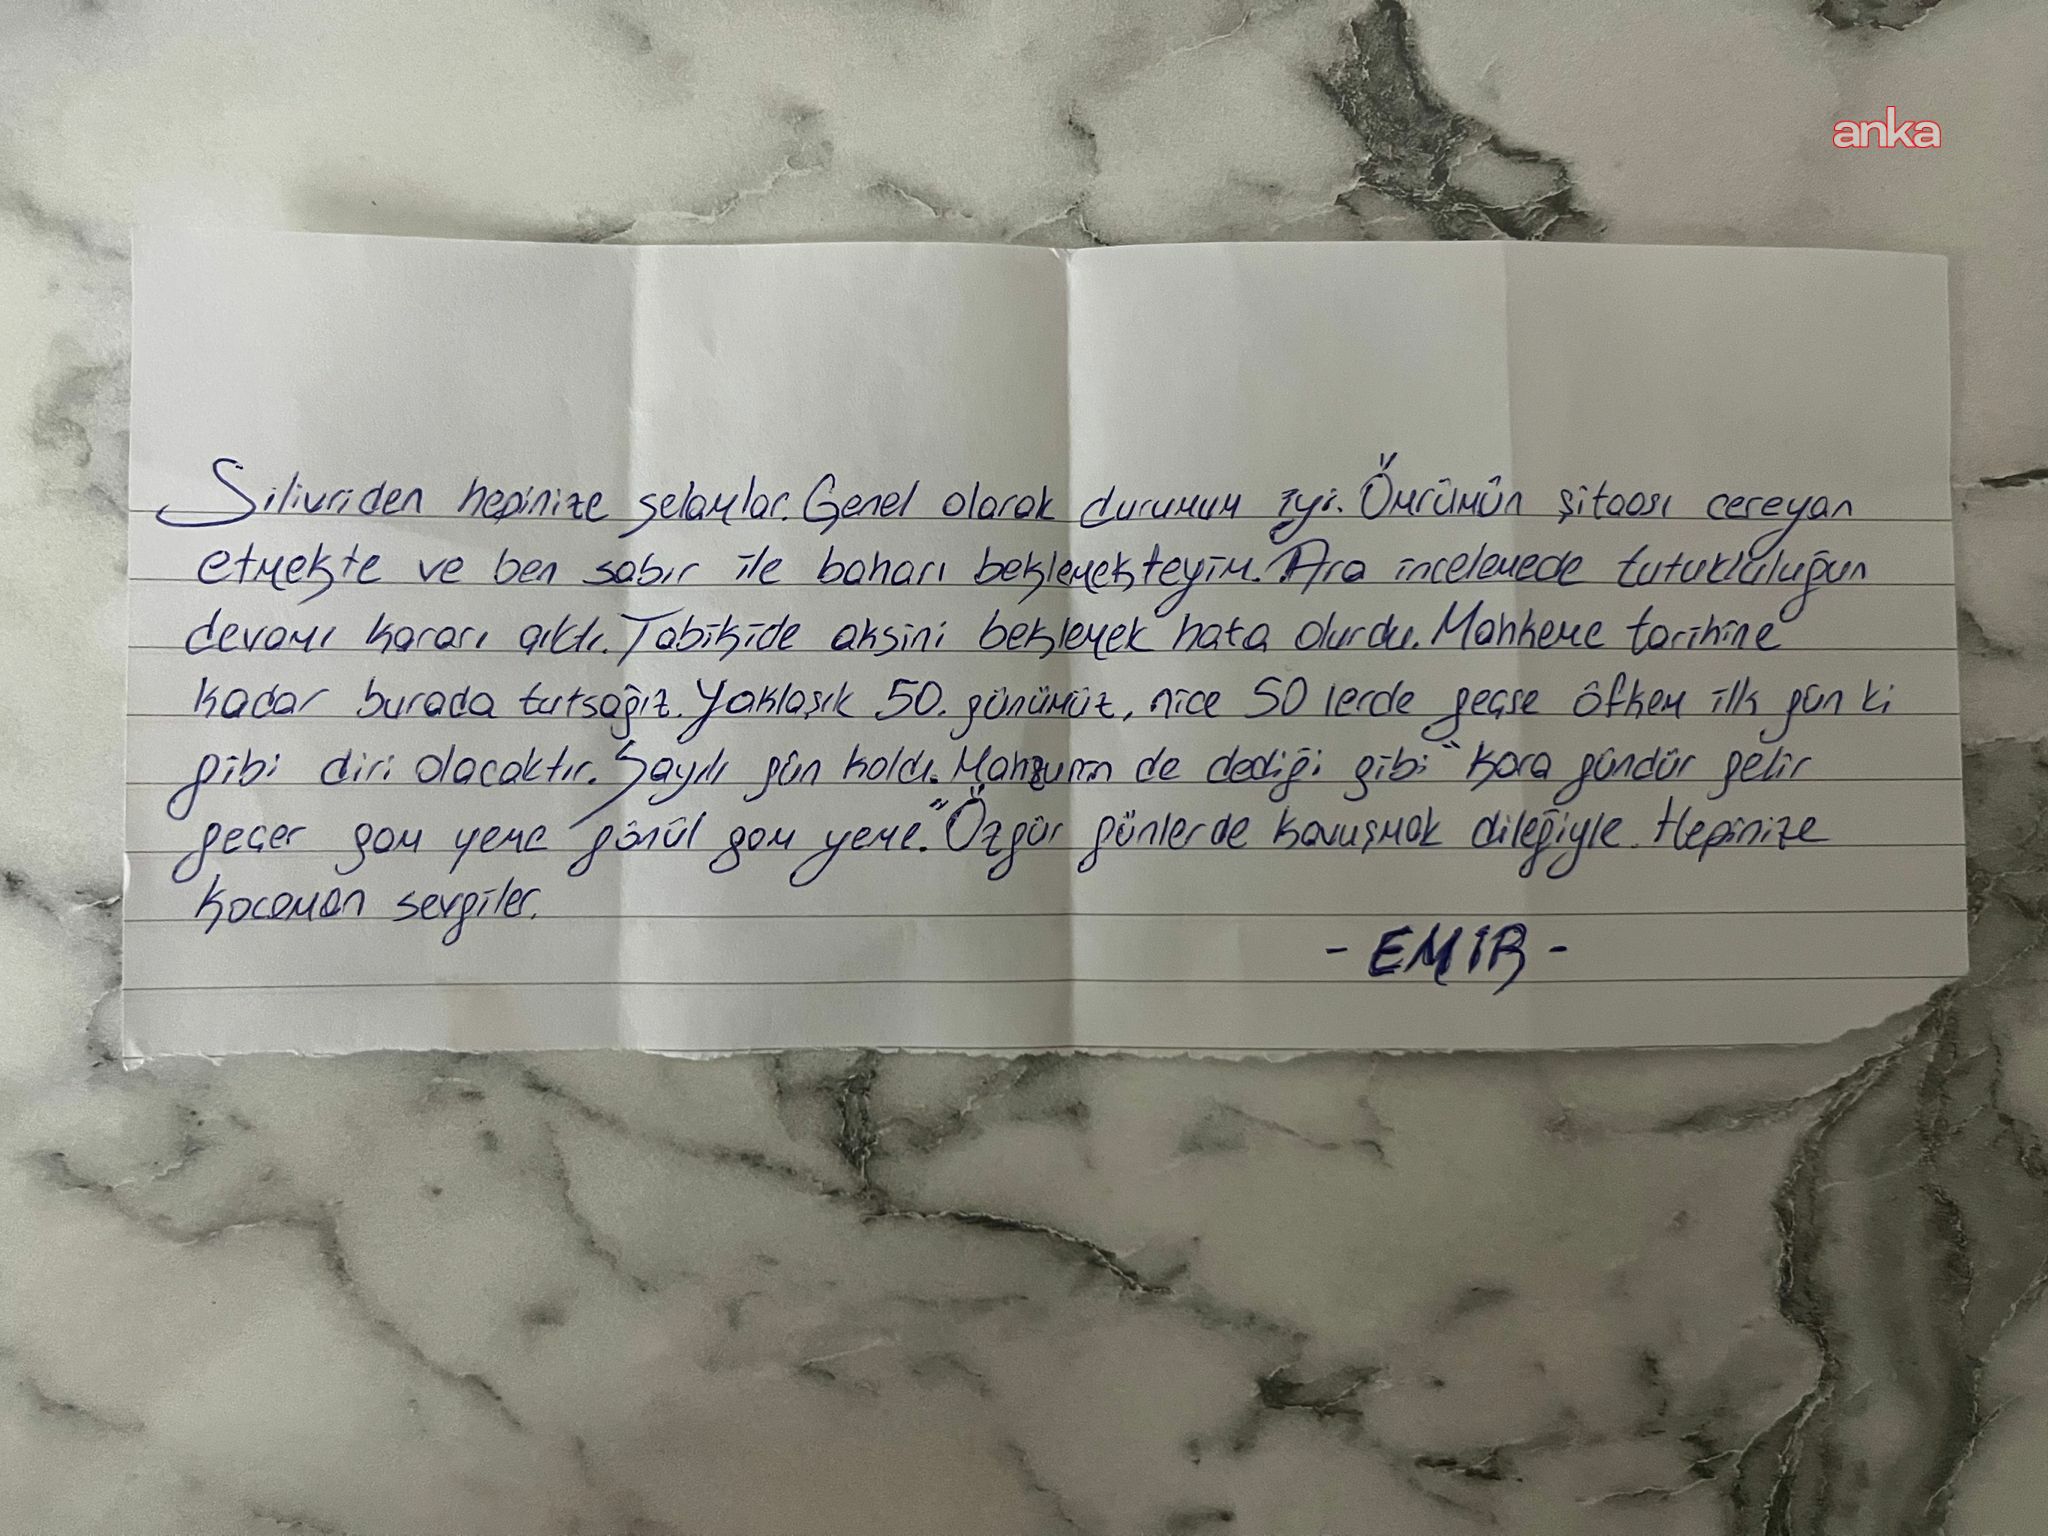 anka
Silivriden hepinize selamlar. Genel olarak durumum iyi. Ömrümün şitaası cereyan
etmekte ve ben sabır ile baharı beklemekteyim. Ara incelemede tutukluluğun
devamı kararı çıktı. Tabikide aksini beklemek hata olurdu. Mahkeme tarihine
kadar burada tutsağız. Yaklaşık 50. günümüz, nice 50 lerde geçse öfkem ilk gün ki
gibi diri olacaktır. Sayılı gün kaldı. Mahzunin de dediği gibi "Kara gündür gelir
geçer gam yeme gönül gam yeme." Özgür günlerde kavuşmak dileğiyle. Hepinize
kocaman sevgiler.
- EMİR -